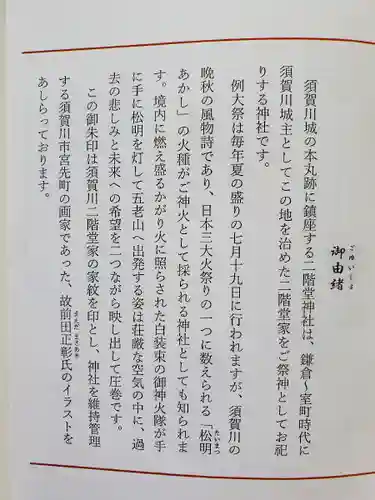 御由緒
ごゆいしょ
須賀川城の本丸跡に鎮座する二階堂神社は、鎌倉〜室町時代に
須賀川城主としてこの地を治めた二階堂家をご祭神としてお祀
りする神社です。
例大祭は毎年夏の盛りの七月十九日に行われますが、須賀川の
晩秋の風物詩であり、日本三大火祭りの一つに数えられる「松明
たいまつ
あかし」の火種がご神火として採られる神社としても知られま
す。境内に燃え盛るかがり火に照らされた白装束の御神火隊が手
に手に松明を灯して五老山へ出発する姿は荘厳な空気の中に、過
去の悲しみと未来への希望を二つながら映し出して圧巻です。
この御朱印は須賀川二階堂家の家紋を印とし、神社を維持管理
する須賀川市宮先町の画家であった、故前田正彰氏のイラストを
まえだまさあき
あしらっております。